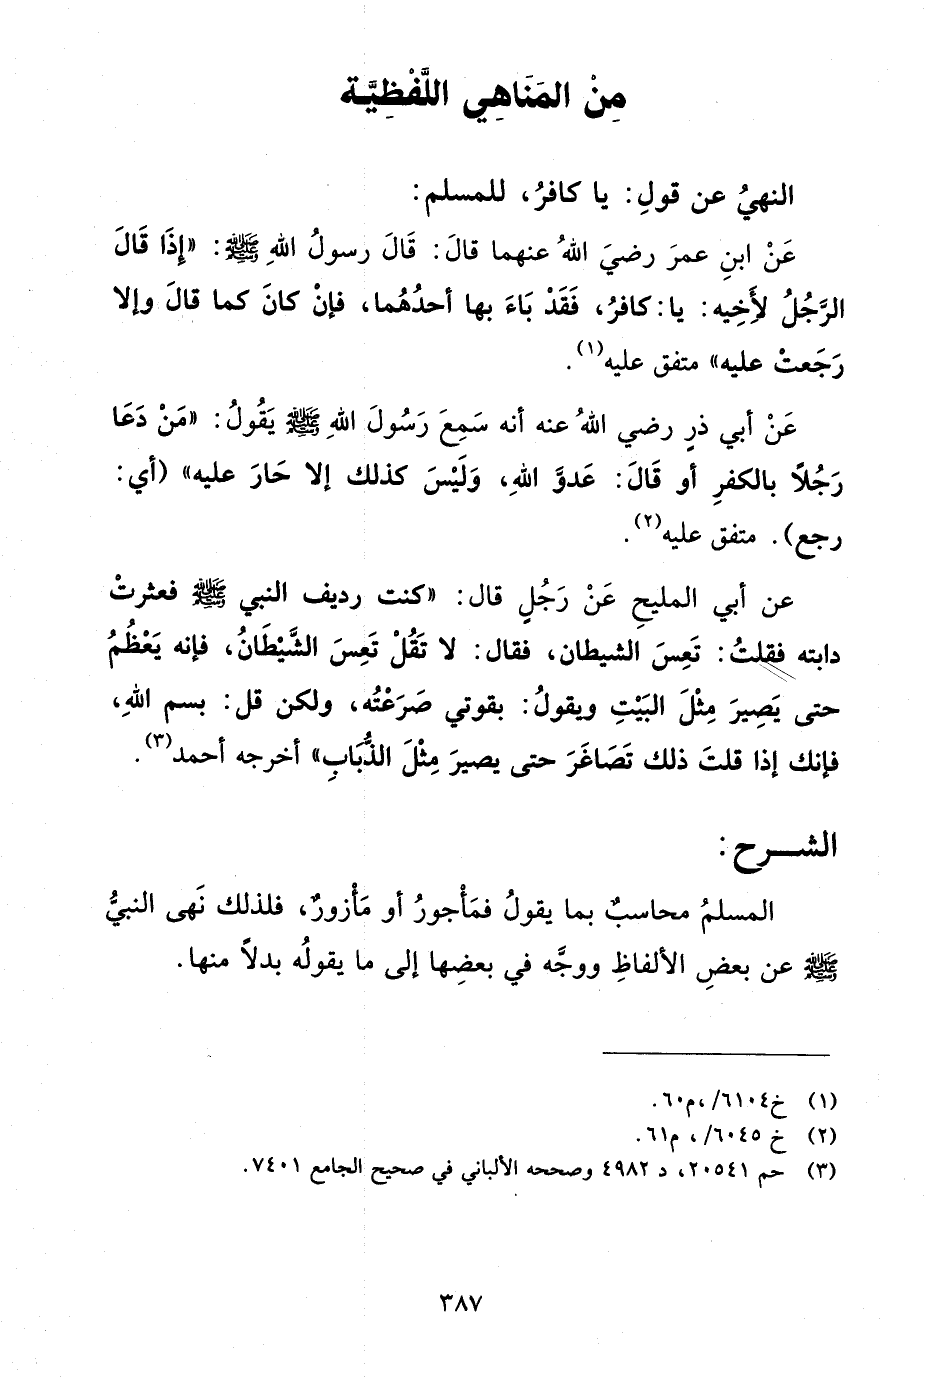 مِنْ المَنَاهِي اللَّفْظِيَّـة
النهيُ عن قولِ: يا كافرُ، للمسلم:
عَنْ ابنِ عمرَ رضيَ اللهُ عنهما قالَ: قَالَ رسولُ اللهِ ﷺ: «إِذَا قَالَ
الرَّجُلُ لأَخِيه: يا: كافرُ، فَقَدْ بَاءَ بها أحدُهُما، فإنْ كانَ كما قالَ وإلا
رَجَعتْ عليه» متفق عليه(١).
عَنْ أبي ذرٍ رضي اللهُ عنه أنه سَمِعَ رَسُولَ اللهِ ﷺ يَقُولُ: «مَنْ دَعَا
رَجُلاً بالكفرِ أو قَالَ: عَدوَّ اللهِ، وَلَيْسَ كذلك إلا حَارَ عليه» (أي:
رجع). متفق عليه(٢).
عن أبي المليحِ عَنْ رَجُلٍ قال: «كنت رديف النبي ﷺ فعثرتْ
دابته فقلتُ: تَعِسَ الشيطان، فقال: لا تَقُلْ تَعِسَ الشَّيْطَانُ، فإنه يَعْظُمُ
حتى يَصِيرَ مِثْلَ البَيْتِ ويقولُ: بقوتي صَرَعْتُه، ولكن قل: بسم اللهِ،
فإنك إذا قلتَ ذلك تَصَاغَرَ حتى يصيرَ مِثْلَ الذُّبَابِ» أخرجه أحمد(٣).
الشـــرح:
المسلمُ محاسبٌ بما يقولُ فمَأْجورُ أو مَأْزورٌ، فلذلك نَهى النبيُّ
ﷺ عن بعضِ الألفاظِ ووجَّه في بعضِها إلى ما يقولُه بدلاً منها.
(١) خ٦١٠٤/ ،م٦٠.
(٢) خ ٦٠٤٥/ ، م٦١.
(٣) حم ٢٠٥٤١، د ٤٩٨٢ وصححه الألباني في صحيح الجامع ٧٤٠١.
٣٨٧